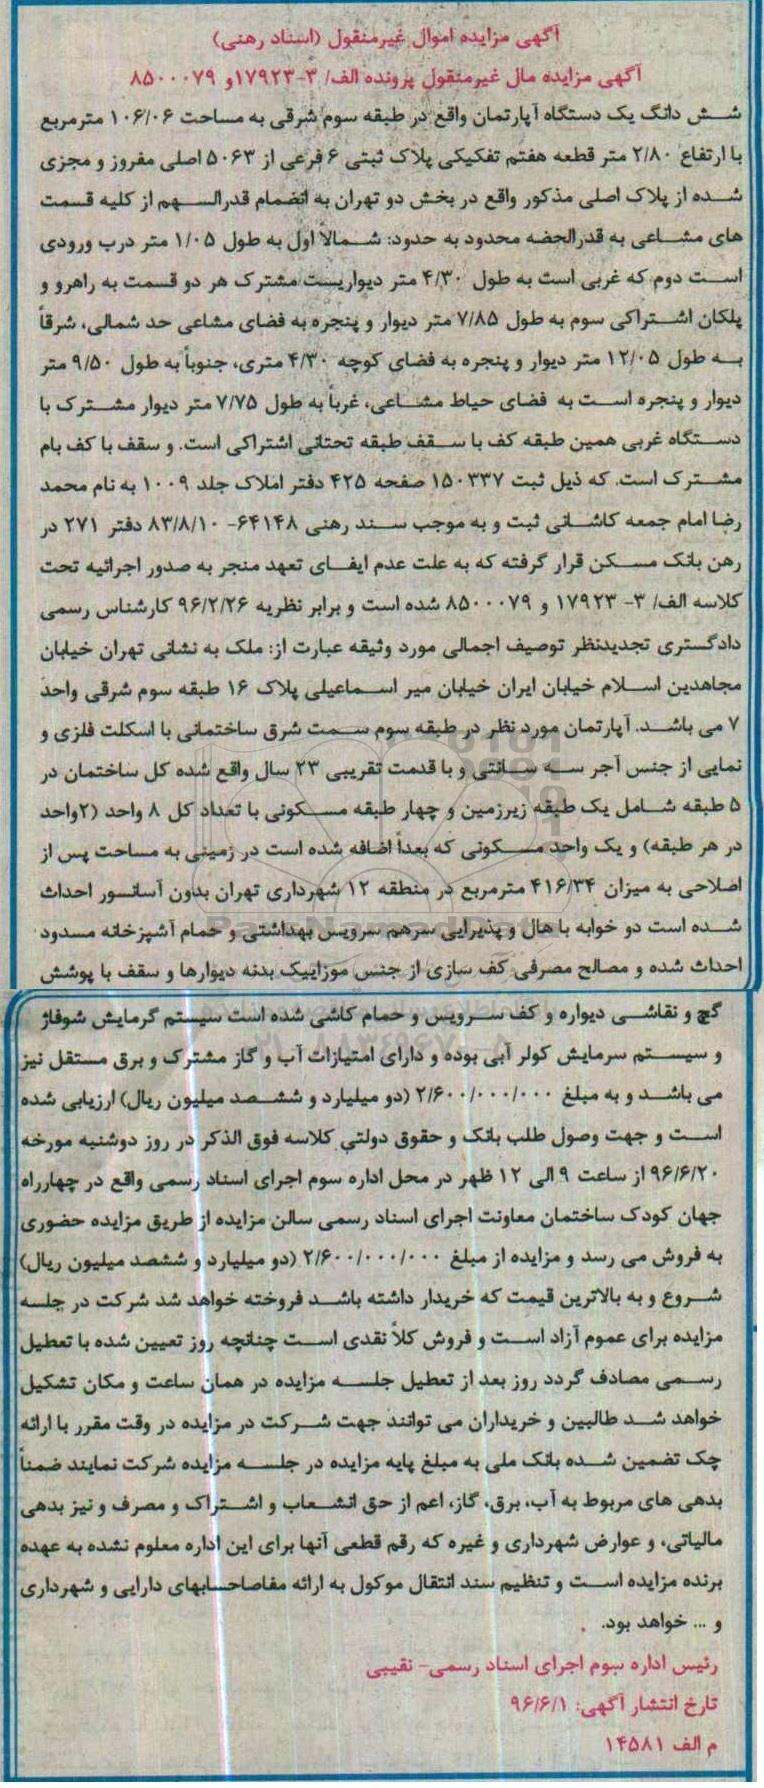 آگهی مزایده اموال غیرمنقول (اسناد رهنی)
آگهی مزایده مال غیرمنقول پرونده الف/ ۳-۱۷۹۲۳و ۸۵۰۰۰۷۹
شش دانگ یک دستگاه آپارتمان واقع در طبقه سوم شرقی به مساحت ۱۰۶/۰۶ مترمربع
با ارتفاع ۲/۸۰ متر قطعه هفتم تفکیکی پلاک ثبتی ۶ فرعی از ۵۰۶۳ اصلی مفروز و مجزی
شده از پلاک اصلی مذکور واقع در بخش دو تهران به انضمام قدرالسهم از کلیه قسمت
های مشاعی به قدرالحضه محدود به حدود: شمالاً اول به طول ۱/۰۵ متر درب ورودی
است دوم که غربی است به طول ۴/۳۰ متر دیواریست مشترک هر دو قسمت به راهرو و
پلکان اشتراکی سوم به طول ۷/۸۵ متر دیوار و پنجره به فضای مشاعی حد شمالی، شرقاً
به طول ۱۲/۰۵ متر دیوار و پنجره به فضای کوچه ۴/۳۰ متری، جنوباً به طول ۹/۵۰ متر
دیوار و پنجره است به فضای حیاط مشاعی، غرباً به طول ۷/۷۵ متر دیوار مشترک با
دستگاه غربی همین طبقه کف با سقف طبقه تحتانی اشتراکی است. و سقف با کف بام
مشترک است. که ذیل ثبت ۱۵۰۳۳۷ صفحه ۴۲۵ دفتر املاک جلد ۱۰۰۹ به نام محمد
رضا امام جمعه کاشانی ثبت و به موجب سند رهنی ۶۴۱۴۸- ۸۳/۸/۱۰ دفتر ۲۷۱ در
رهن بانک مسکن قرار گرفته که به علت عدم ایفای تعهد منجر به صدور اجرائیه تحت
کلاسه الف/ ۳- ۱۷۹۲۳ و ۸۵۰۰۰۷۹ شده است و برابر نظریه ۹۶/۲/۲۶ کارشناس رسمی
دادگستری تجدیدنظر توصیف اجمالی مورد وثیقه عبارت از: ملک به نشانی تهران خیابان
مجاهدین اسلام خیابان ایران خیابان میر اسماعیلی پلاک ۱۶ طبقه سوم شرقی واحد
۷ می باشد. آپارتمان مورد نظر در طبقه سوم سمت شرق ساختمانی با اسکلت فلزی و
نمایی از جنس آجر سه سانتی و با قدمت تقریبی ۲۳ سال واقع شده کل ساختمان در
۵ طبقه شامل یک طبقه زیرزمین و چهار طبقه مسکونی با تعداد کل ۸ واحد (۲واحد
در هر طبقه) و یک واحد مسکونی که بعداً اضافه شده است در زمینی به مساحت پس از
اصلاحی به میزان ۴۱۶/۳۴ مترمربع در منطقه ۱۲ شهرداری تهران بدون آسانسور احداث
شده است دو خوابه با هال و پذیرایی سرهم سرویس بهداشتی و حمام آشپزخانه مسدود
احداث شده و مصالح مصرفی کف سازی از جنس موزاییک بدنه دیوارها و سقف با پوشش
گچ و نقاشی دیواره و کف سرویس و حمام کاشی شده است سیستم گرمایش شوفاژ
و سیستم سرمایش کولر آبی بوده و دارای امتیازات آب و گاز مشترک و برق مستقل نیز
می باشد و به مبلغ ۲/۶۰۰/۰۰۰/۰۰۰ (دو میلیارد و ششصد میلیون ریال) ارزیابی شده
است و جهت وصول طلب بانک و حقوق دولتی کلاسه فوق الذکر در روز دوشنبه مورخه
۹۶/۶/۲۰ از ساعت ۹ الی ۱۲ ظهر در محل اداره سوم اجرای اسناد رسمی واقع در چهارراه
جهان کودک ساختمان معاونت اجرای اسناد رسمی سالن مزایده از طریق مزایده حضوری
به فروش می رسد و مزایده از مبلغ ۲/۶۰۰/۰۰۰/۰۰۰ (دو میلیارد و ششصد میلیون ریال)
شروع و به بالاترین قیمت که خریدار داشته باشد فروخته خواهد شد شرکت در جلسه
مزایده برای عموم آزاد است و فروش کلاً نقدی است چنانچه روز تعیین شده با تعطیل
رسمی مصادف گردد روز بعد از تعطیل جلسه مزایده در همان ساعت و مکان تشکیل
خواهد شد طالبین و خریداران می توانند جهت شرکت در مزایده در وقت مقرر با ارائه
چک تضمین شده بانک ملی به مبلغ پایه مزایده در جلسه مزایده شرکت نمایند ضمناً
بدهی های مربوط به آب، برق، گاز، اعم از حق انشعاب و اشتراک و مصرف و نیز بدهی
مالیاتی، و عوارض شهرداری و غیره که رقم قطعی آنها برای این اداره معلوم نشده به عهده
برنده مزایده است و تنظیم سند انتقال موکول به ارائه مفاصاحسابهای دارایی و شهرداری
و ... خواهد بود.
رئیس اداره سوم اجرای اسناد رسمی- نقیبی
تارخ انتشار آگهی: ۹۶/۶/۱
م الف ۱۴۵۸۱